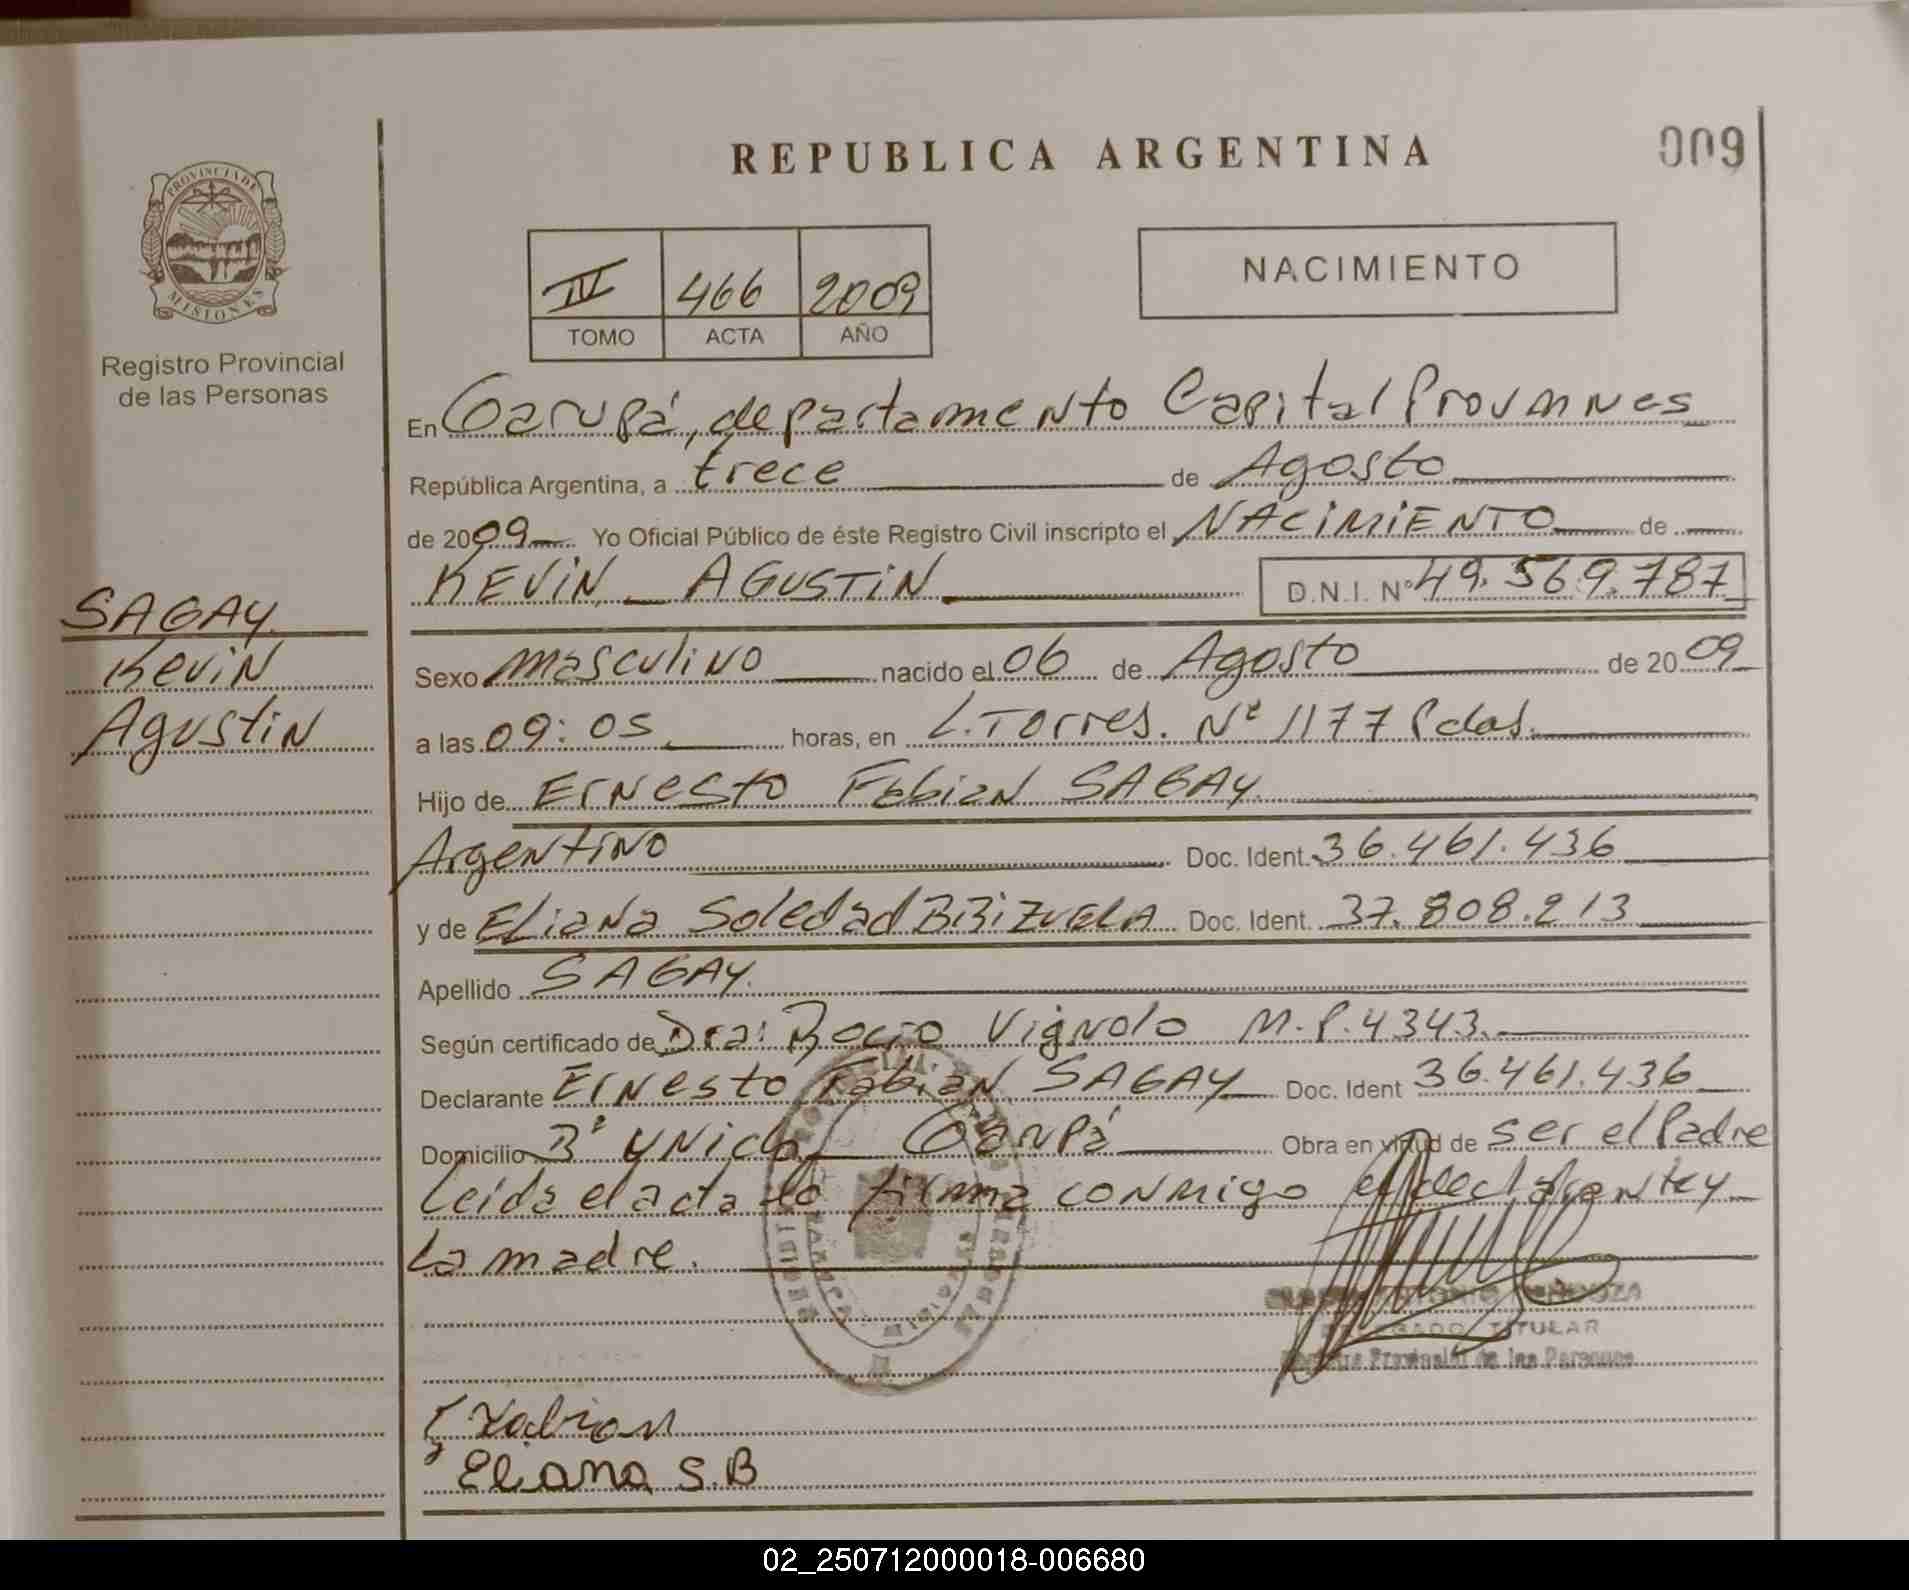 REPUBLICA ARGENTINA
009
PROVINCIA DE
MISIONES
Registro Provincial
de las Personas
IV 466 2009
TOMO ACTA AÑO
NACIMIENTO
En Garupá, departamento Capital Prov Mnes
República Argentina, a trece de Agosto
de 2009 Yo Oficial Público de éste Registro Civil inscripto el NACIMIENTO de
KEVIN AGUSTIN D.N.I. Nº 49.569.787
SAGAY
Kevin
Agustin
Sexo masculino nacido el 06 de Agosto de 2009
a las 09:05 horas, en L. Torres. Nº 1177 Pdas.
Hijo de Ernesto Fabian SAGAY
Argentino Doc. Ident. 36.461.436
y de Eliana Soledad BRIZUELA Doc. Ident. 37.808.213
Apellido SAGAY.
Según certificado de Dra: Rocio Vignolo M.P. 4343.
Declarante Ernesto Fabian SAGAY Doc. Ident 36.461.436
Domicilio Bº Garupá Obra en virtud de ser el Padre
Leida el acta la firma conmigo el declarante y
la madre.
MENDOZA
DELEGADO TITULAR
Registro Provincial de las Personas
Fabian
Eliana S.B
02_250712000018-006680